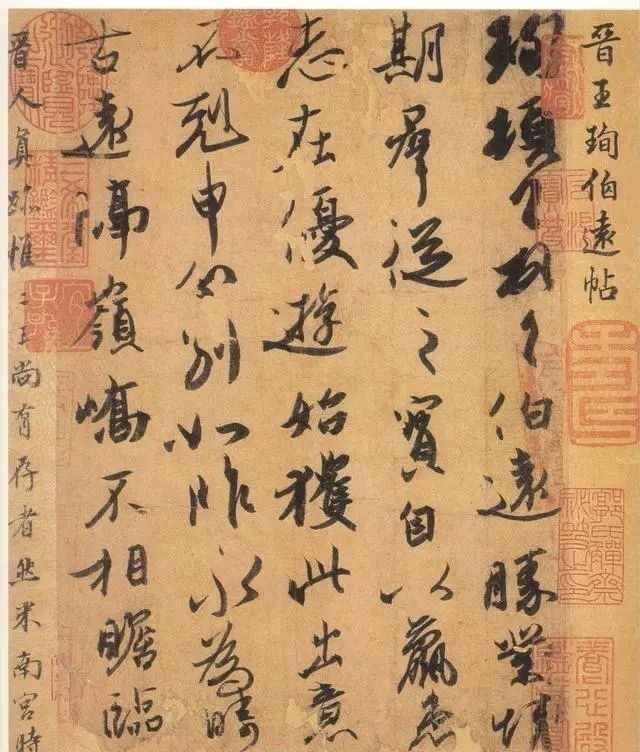 晋王珣伯遠帖
珣頓首頓首伯遠勝業情
期羣從之寳自以羸患
志在優遊始獲此出意
不剋申分别如昨永為疇
古遠隔嶺嶠不相瞻臨
晉人真跡惟二王尚有存者然米南宫時